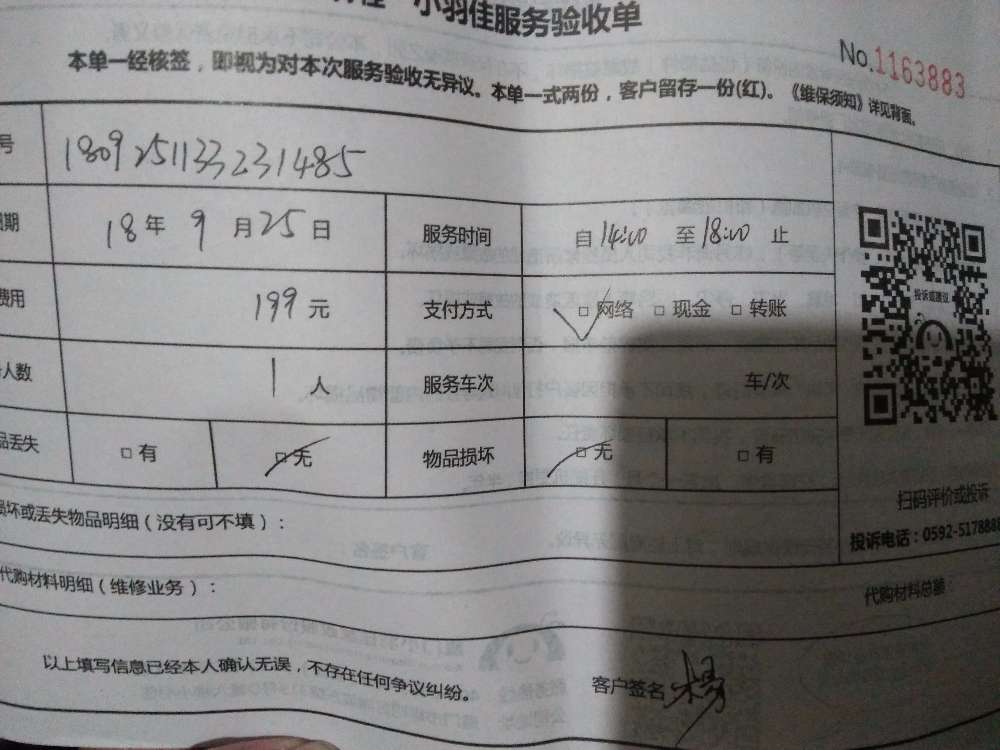 小羽佳服务验收单
No.1163883
本单一经核签，即视为对本次服务验收无异议。本单一式两份，客户留存一份(红)。《维保须知》详见背面。
号 180925113323 1485
期 18年 9月25日 服务时间 自14:00 至18:00 止
费用 199元 支付方式 □网络 □现金 □转账
人数 1人 服务车次 车/次
品丢失 □有 □无 物品损坏 □无 □有
投诉或建议
扫码评价或投诉
投诉电话：0592-517888
损坏或丢失物品明细（没有可不填）：
代购材料明细（维修业务）： 代购材料总额：
以上填写信息已经本人确认无误，不存在任何争议纠纷。 客户签名 杨